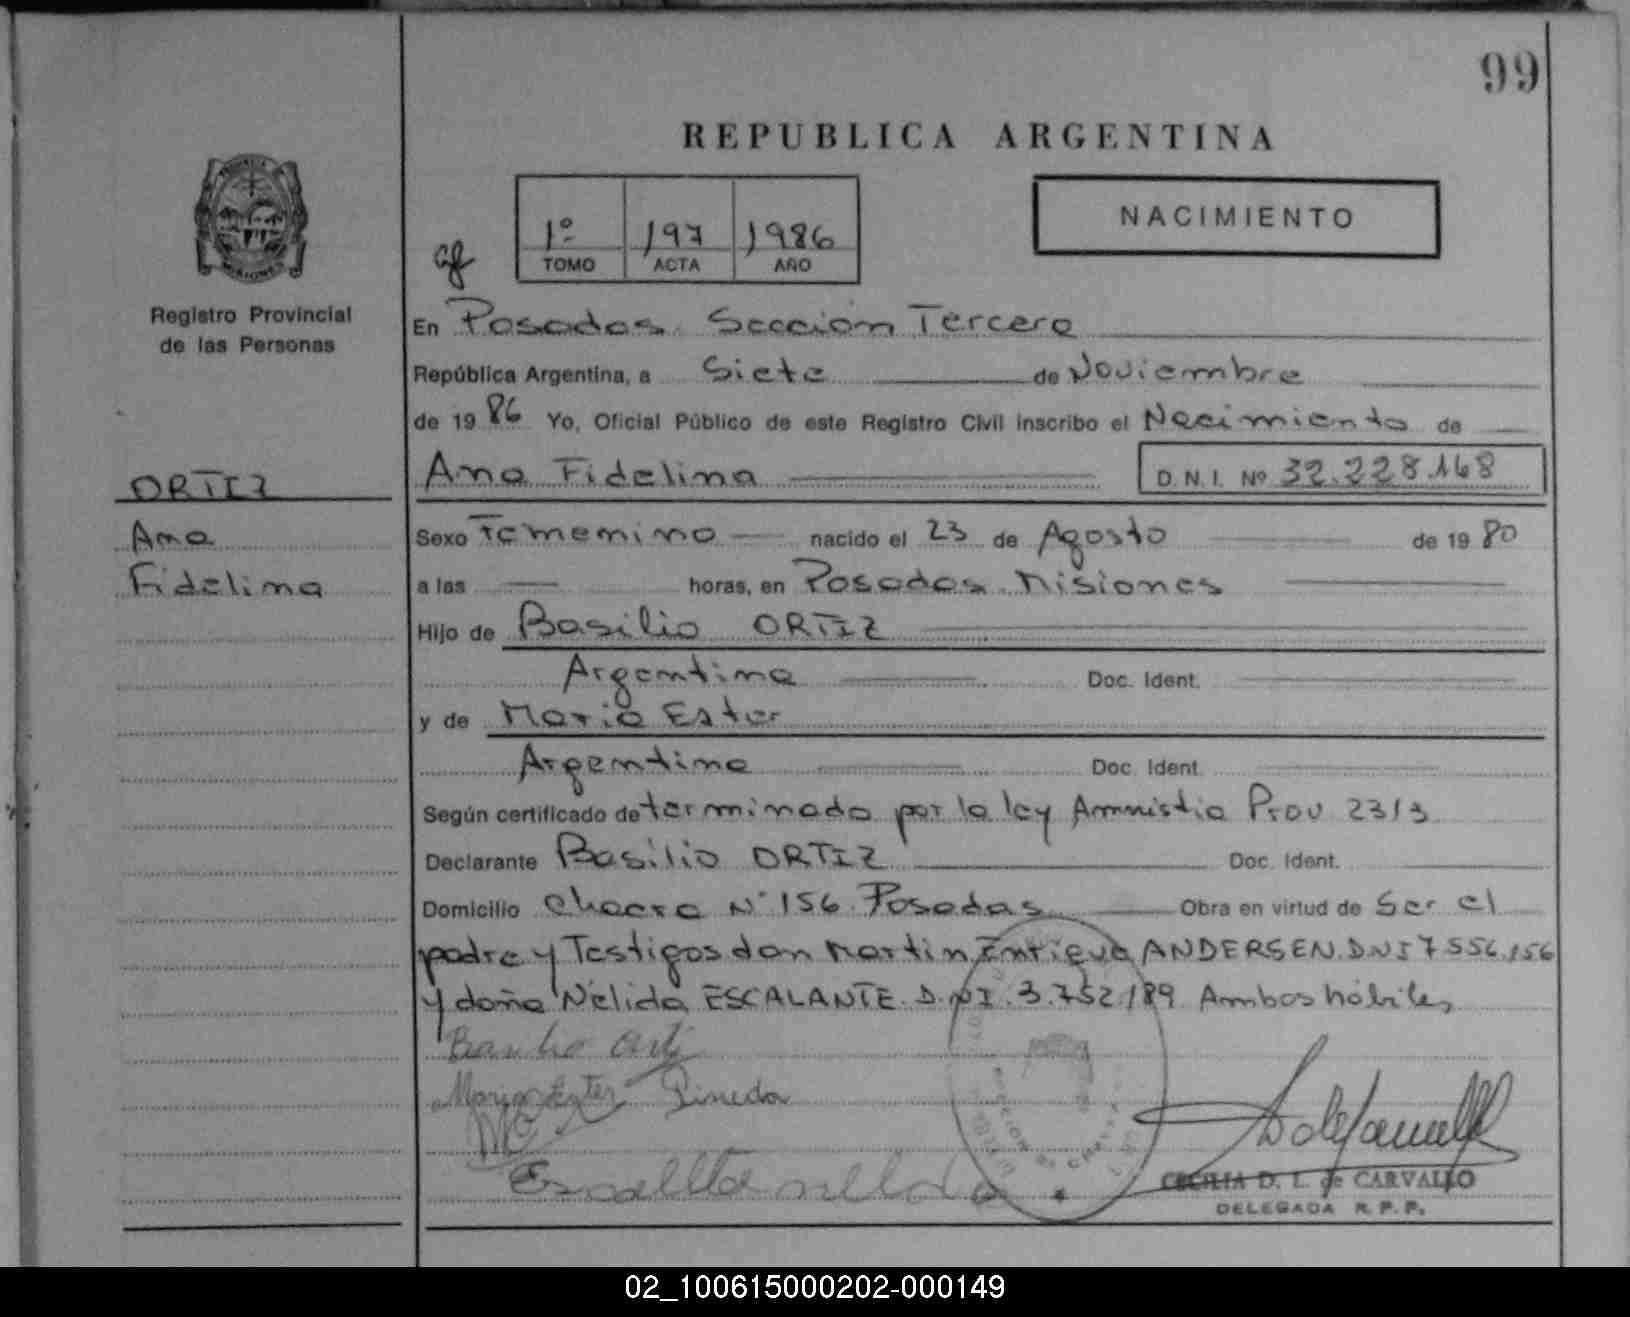 99
REPUBLICA ARGENTINA
1º 197 1986
TOMO ACTA AÑO
NACIMIENTO
Registro Provincial
de las Personas
En Posadas. Sección Tercera
República Argentina, a Siete de Noviembre
de 19 86 Yo, Oficial Público de este Registro Civil inscribo el Nacimiento de
Ana Fidelina D. N. I. Nº 32.228.168
ORTIZ
Ana
Fidelina
Sexo Femenino nacido el 23 de Agosto de 19 80
a las horas, en Posadas. Misiones
Hijo de Basilio ORTIZ
Argentina Doc. Ident.
y de Maria Ester
Argentina Doc. Ident.
Según certificado determinado por la ley Amnistia Prov 2313
Declarante Basilio ORTIZ Doc. Ident.
Domicilio Chacra Nº 156. Posadas Obra en virtud de Ser el
padre y Testigos don Martin Enrique ANDERSEN. DNI 7556.156
y doña Nélida ESCALANTE. D.NI. 3.752.189. Ambos hábiles
Maria Ester Pineda
CECILIA D. L. de CARVALLO
DELEGADA R. P. P.
02_100615000202-000149